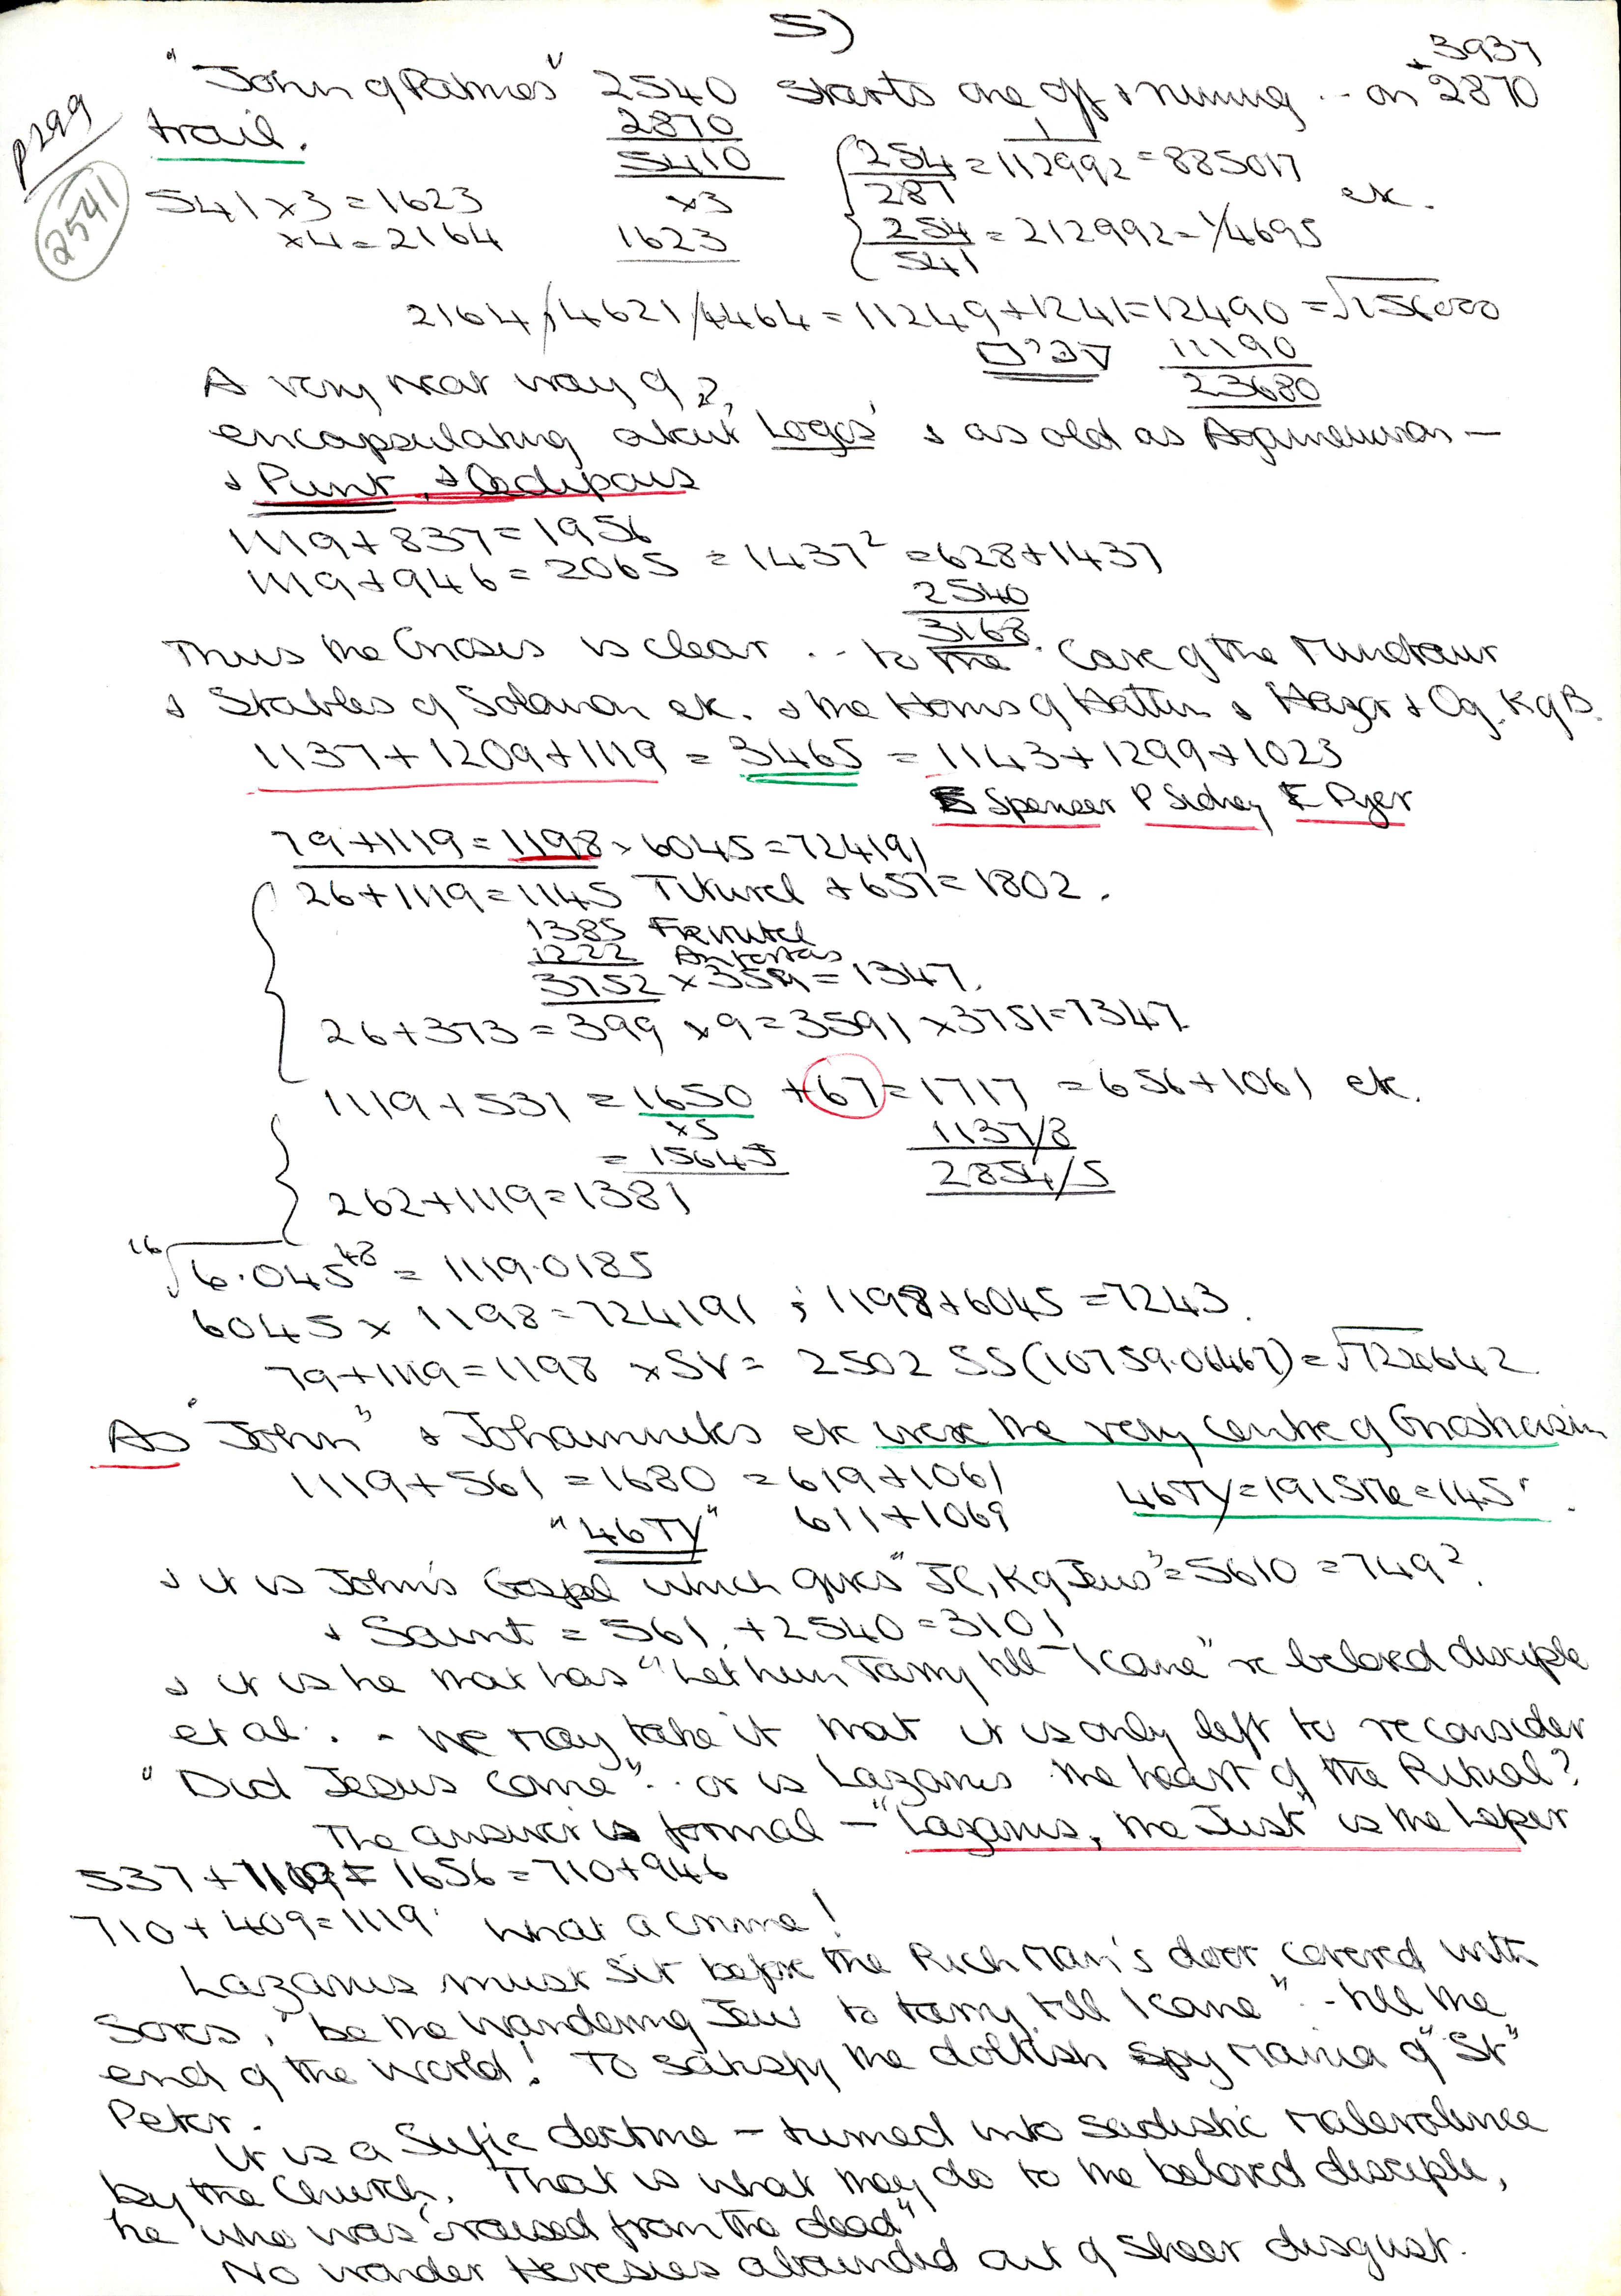 5)
"John of Patmos" 2540 starts one off & running .. on 2870
+ 3937
p299
2541
trail.
2870
5410
x3
1623
541 x3 = 1623
x4 = 2164
254/287 = 112992 = 885017
etc.
254/541 = 212992 = 1/4695
2164/4621/4464 = 11249 + 1241 = 12490 = √156000
11190
23680
A very neat way of
encapsulating about 'Logos' & as old as Agamemnon —
& Punt, & Oedipous
1119 + 837 = 1956
1119 + 946 = 2065 = 1437² = 628 + 1437
2540
3168
Thus the Gnosis is clear .. to the Cave of the Minotaur
& Stables of Solomon etc. & the Horns of Hattin & Hazor & Og. K of B.
1137 + 1209 + 1119 = 3465 = 1143 + 1299 + 1023
E Spenser P Sidney E Dyer
79 + 1119 = 1198 x 6045 = 724191
26 + 1119 = 1145 Titurel + 657 = 1802.
1385 Frimutel
1222 Anfortas
3752 x 359 = 1347.
26 + 373 = 399 x 9 = 3591 x 3751 = 1347
1119 + 531 = 1650 + 67 = 1717 = 656 + 1061 etc.
x5
= 15645
1137/8
2854/5
262 + 1119 = 1381
16√6.045^48 = 1119.0185
6045 x 1198 = 724191 ; 1198 + 6045 = 7243.
79 + 1119 = 1198 x SV = 2502 SS (10759.06467) = √
As "John" & Johannites etc were the very centre of Gnosticism
1119 + 561 = 1680 = 619 + 1061
46TY = 1915 = 14.5'.
"46TY"
611 + 1069
& it is John's Gospel which gives "JC, K of Jews" = 5610 = 749².
& Saint = 561, + 2540 = 3101
& it is he that has "Let him Tarry till I come" re beloved disciple
et al. . - We may take it that it is only left to reconsider
"Did Jesus come" .. or is Lazarus the heart of the Ritual?
The answer is formal — "Lazarus, the Just" is the Leper
537 + 1119 = 1656 = 710 + 946
710 + 409 = 1119 What a crime!
Lazarus must sit before the Rich Man's door covered with
Sores, "be the Wandering Jew to tarry till I come" .. till the
end of the world! To satisfy the doltish spy mania of "St"
Peter.
It is a Sufic doctrine — turned into sadistic malevolence
by the Church. That is what they do to the beloved disciple,
he who was "raised from the dead"
No wonder Heresies abounded out of sheer disgust.